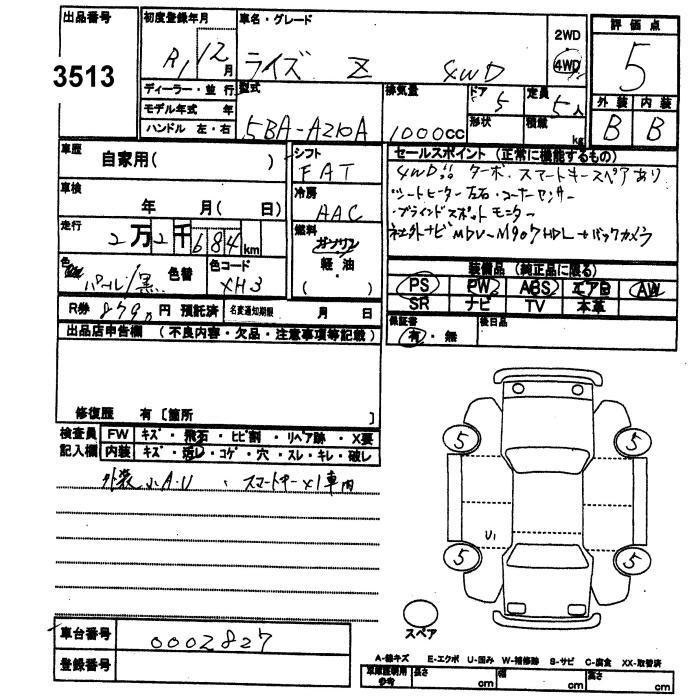 出品番号 初度登録年月 車名・グレード 2WD 評価点
3513 R1 12月 ライズ Z 4WD 4WD 5
ディーラー・並行 型式 排気量 ドア 5 定員 5人 外装 内装
モデル年式 年
ハンドル 左・右 5BA-A210A 1000cc 形状 積載 kg B B
車歴 自家用( ) シフト FAT セールスポイント (正常に機能するもの)
4WD!! ターボ・スマートキースペアあり
車検 年 月( 日) 冷房 AAC シートヒーター左右・コーナーセンサー
・ブラインドスポットモニター
走行 2万2千684km 燃料 ガソリン 社外ナビ MDV-M907HDL+バックカメラ
色 パール/黒 色替 色コード XH3 軽・油 ( ) 装備品 (純正品に限る)
PS PW ABS エアB AW
SR ナビ TV 本革
R券 8790円 預託済 名変通知期限 月 日 保証書 有・無 後日品
出品店申告欄 (不良内容・欠品・注意事項等記載)
修復歴 有 [箇所 ]
検査員 FW キズ・飛石・ヒビ割・リペア跡・X要
記入欄 内装 キズ・汚レ・コゲ・穴・スレ・キレ・破レ
外装小A.U 、スマートキー×1車内
5 5
U1
5 5
スペア
車台番号 0002827
登録番号
A-線キズ E-エクボ U-凹み W-補修跡 S-サビ C-腐食 XX-取替済
車庫証明用参考 長さ cm 幅 cm 高さ cm